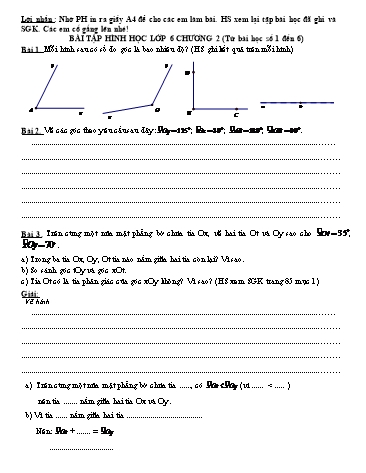 Lời nhắn: Nhờ PH in ra giấy A4 để cho các em làm bài. HS xem lại tập bài học đã ghi và
SGK. Các em cố gắng lên nhé!
BÀI TẬP HÌNH HỌC LỚP 6 CHƯƠNG 2 (Từ bài học số 1 đến 6)
Bài 1. Mỗi hình sau có số đo góc là bao nhiêu độ? (HS ghi kết quả trên mỗi hình)
A
O
B
C
Bài 2. Vẽ các góc theo yêu cầu sau đây:
Bài 3. Trên cùng một nửa mặt phẳng bờ chứa tia Ox, vẽ hai tia Ot và Oy sao cho xOt = 35°,
xOy = 70°.
a) Trong ba tia Ox, Oy, Ot tia nào nằm giữa hai tia còn lại? Vì sao.
b) So sánh góc tOy và góc xOt.
c) Tia Ot có là tia phân giác của góc xOy không? Vì sao? (HS xem SGK trang 85 mục 1)
Giải:
Vẽ hình
a) Trên cùng một nửa mặt phẳng bờ chứa tia ......, có xOt < xOy (vì ...... < ..... )
nên tia ....... nằm giữa hai tia Ox và Oy.
b) Vì tia ...... nằm giữa hai tia ..................................
Nên: xOt + ....... = xOy